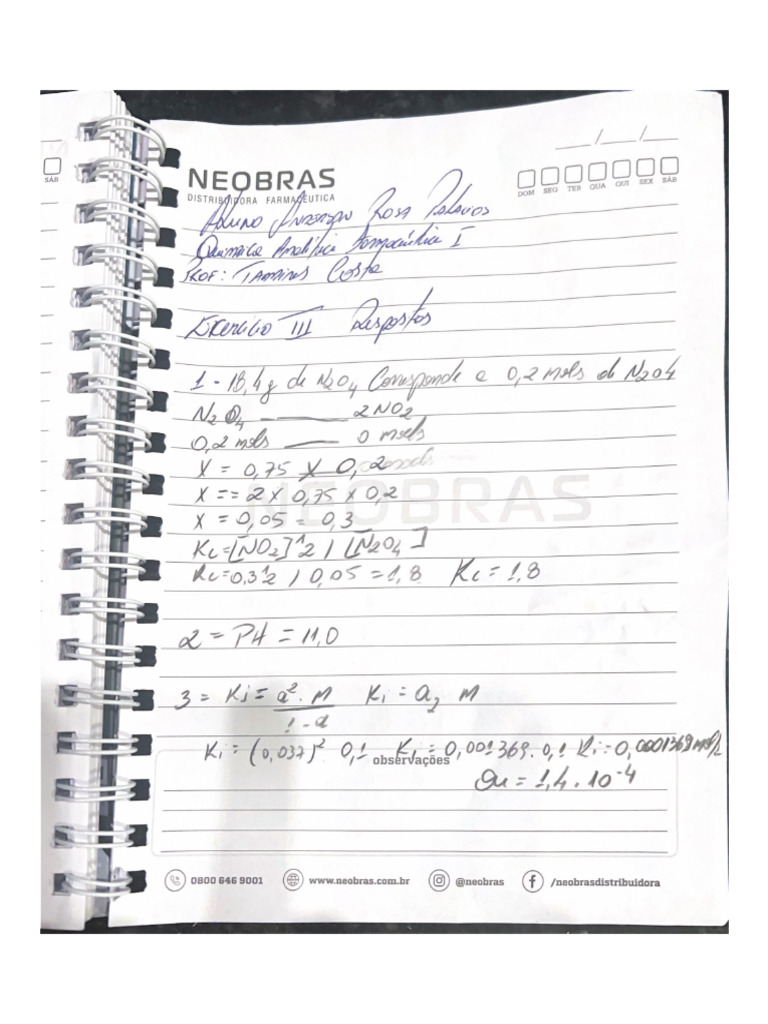 SÁB
NEOBRAS
DISTRIBUIDORA FARMACÊUTICA
___/___/___
DOM SEG TER QUA QUI SEX SÁB
Aluno Anderson Rosa
Química Analítica Farmacêutica I
Prof: Costa
Exercício III Respostas
1 - 18,4g de N2O4 Corresponde a 0,2 mols de N2O4
N2O4 ——— 2NO2
0,2 mols —— 0 mols
X = 0,75 X 0,2
X == 2 X 0,75 X 0,2
NEOBRAS
X = 0,05 = 0,3
Kc=[NO2]^2 / [N2O4]
Kc=0,3^2 / 0,05 = 1,8 Kc=1,8
2 = PH = 11,0
3 = Ki = a². M Ki = a2 M
1 - a
Ki = (0,037)² 0,1 Ki = 0,001369.0,1 Ki = 0,0001369 mol/L
observações
Ou = 1,4.10⁻⁴
0800 646 9001 www.neobras.com.br @neobras /neobrasdistribuidora